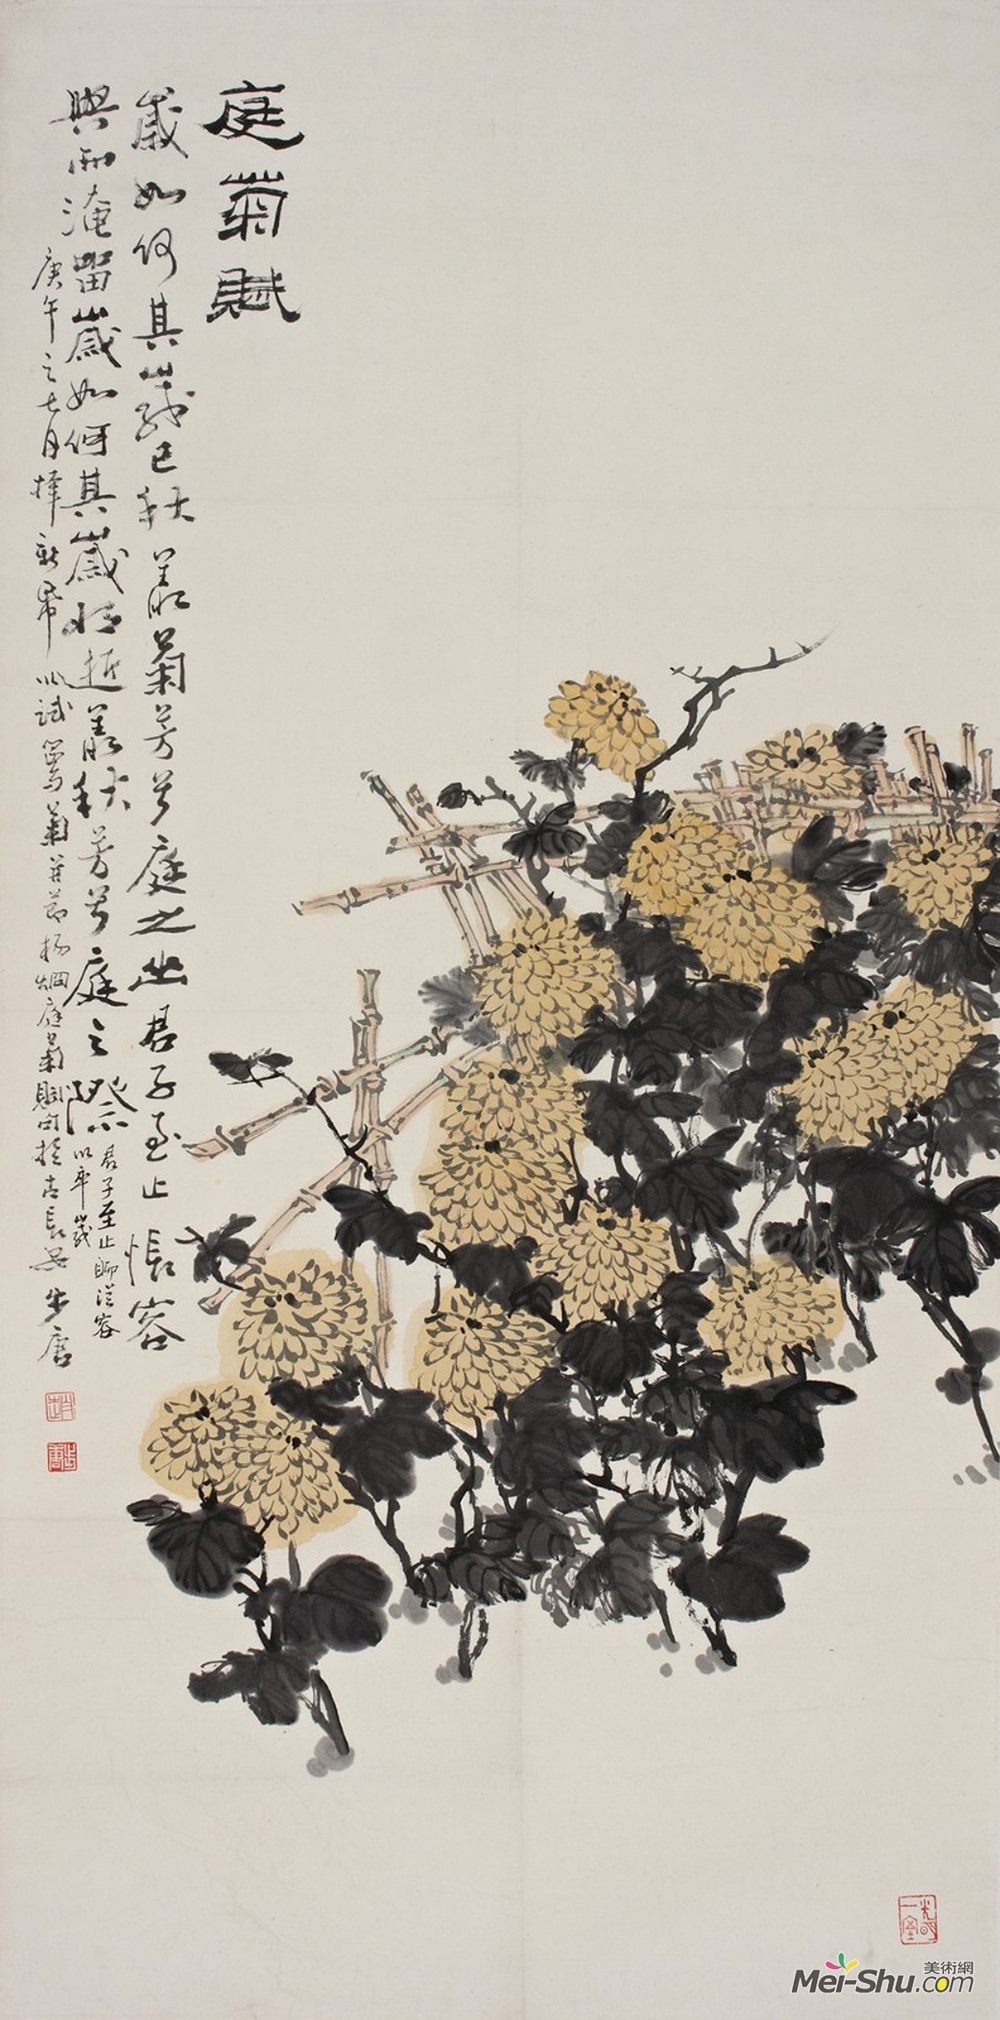 庭菊賦
歲如何其歲已秋叢菊芳兮庭之幽君子至止悵容
與而淹留歲如何其歲將逝叢秋芳兮庭之際
君子至止聊從容
以卒歲
庚午之七月擇新帋以試寫菊并節楊炯庭菊賦句於古長安步唐
美術網
Mei-Shu.com